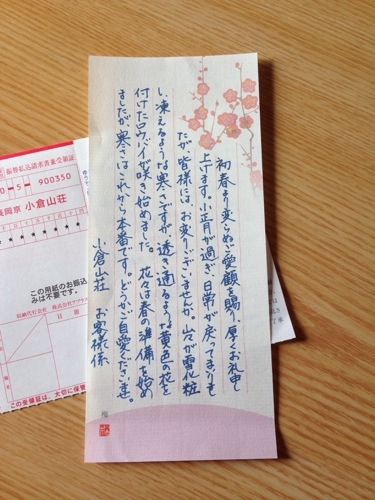 初春より変らぬご愛顧を賜り、厚くお礼申し
上げます。小正月が過ぎ、日常が戻ってまいりまし
たが、皆様には、お変りございませんか。山々が雪化粧
し、凍えるような寒さですが、透き通るような黄色の花を
付けたロウバイが咲き始めました。花々は春の準備を始め
ましたが、寒さはこれから本番です。どうかご自愛くださいませ。
小倉山荘 お客様係
振替払込請求書兼受領証
0-5 900350
長岡京 小倉山荘
この用紙のお振込
みは不要です。
収納代行会社 株式会社アプラス
日附
この受領証は、大切に保管